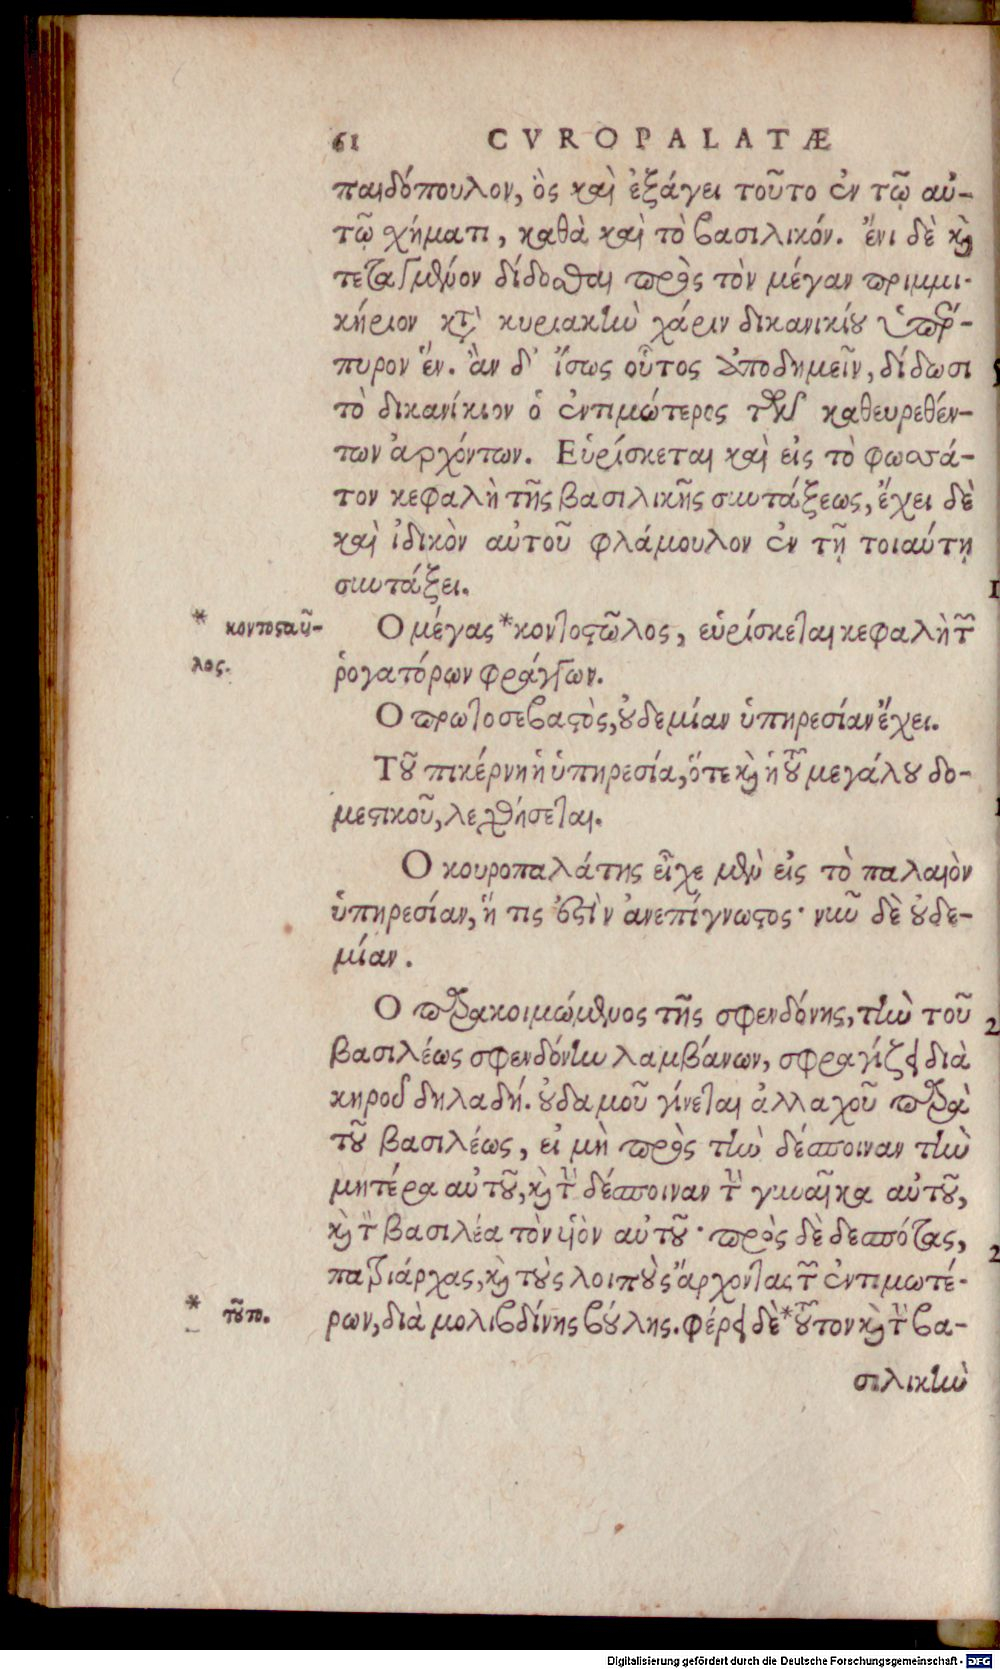 61 CVROPALATÆ
παιδόπουλον, ὃς καὶ ἐξάγει τοῦτο ἐν τῷ αὐ-
τῷ σχήματι, καθὰ καὶ τὸ βασιλικόν. ἔνι δὲ καὶ
τεταγμένον δίδοσθαι πρὸς τὸν μέγαν πριμμι-
κήριον κατὰ κυριακὴν χάριν δικανικίου ὑπέρ-
πυρον ἕν. ἂν δ' ἴσως οὗτος ἀποδημεῖν, δίδωσι
τὸ δικανίκιον ὁ ἐντιμώτερος τῶν καθευρεθέν-
των ἀρχόντων. Εὑρίσκεται καὶ εἰς τὸ φωσσά-
τον κεφαλὴ τῆς βασιλικῆς συντάξεως, ἔχει δὲ
καὶ ἰδικὸν αὐτοῦ φλάμουλον ἐν τῇ τοιαύτῃ
συντάξει.
* κοντοσταῦ-
λος.
Ο μέγας *κοντοστῶλος, εὑρίσκεται κεφαλὴ τῶν
ῥογατόρων φράγγων.
Ο πρωτοσεβαστὸς, οὐδεμίαν ὑπηρεσίαν ἔχει.
Τοῦ πικέρνη ἡ ὑπηρεσία, ὅτε καὶ ἡ τοῦ μεγάλου δο-
μεστικοῦ, λεχθήσεται.
Ο κουροπαλάτης εἶχε μὲν εἰς τὸ παλαιὸν
ὑπηρεσίαν, ἥ τις ἐστὶν ἀνεπίγνωστος· νῦν δὲ οὐδε-
μίαν.
Ο παρακοιμώμενος τῆς σφενδόνης, τὴν τοῦ
βασιλέως σφενδόνην λαμβάνων, σφραγίζει διὰ
κηροῦ δηλαδή. οὐδαμοῦ γίνεται ἀλλαχοῦ παρὰ
τοῦ βασιλέως, εἰ μὴ πρὸς τὴν δέσποιναν τὴν
μητέρα αὐτοῦ, καὶ τὴν δέσποιναν τὴν γυναῖκα αὐτοῦ,
καὶ τὸν βασιλέα τὸν υἱὸν αὐτοῦ· πρὸς δὲ δεσπότας,
πατριάρχας, καὶ τοὺς λοιποὺς ἄρχοντας τῶν ἐντιμωτέ-
* τουπ.
ρων, διὰ μολιβδίνης βούλης. φέρει δὲ *οὗτον καὶ τὴν βα-
σιλικὴν
Digitalisierung gefördert durch die Deutsche Forschungsgemeinschaft - DFG